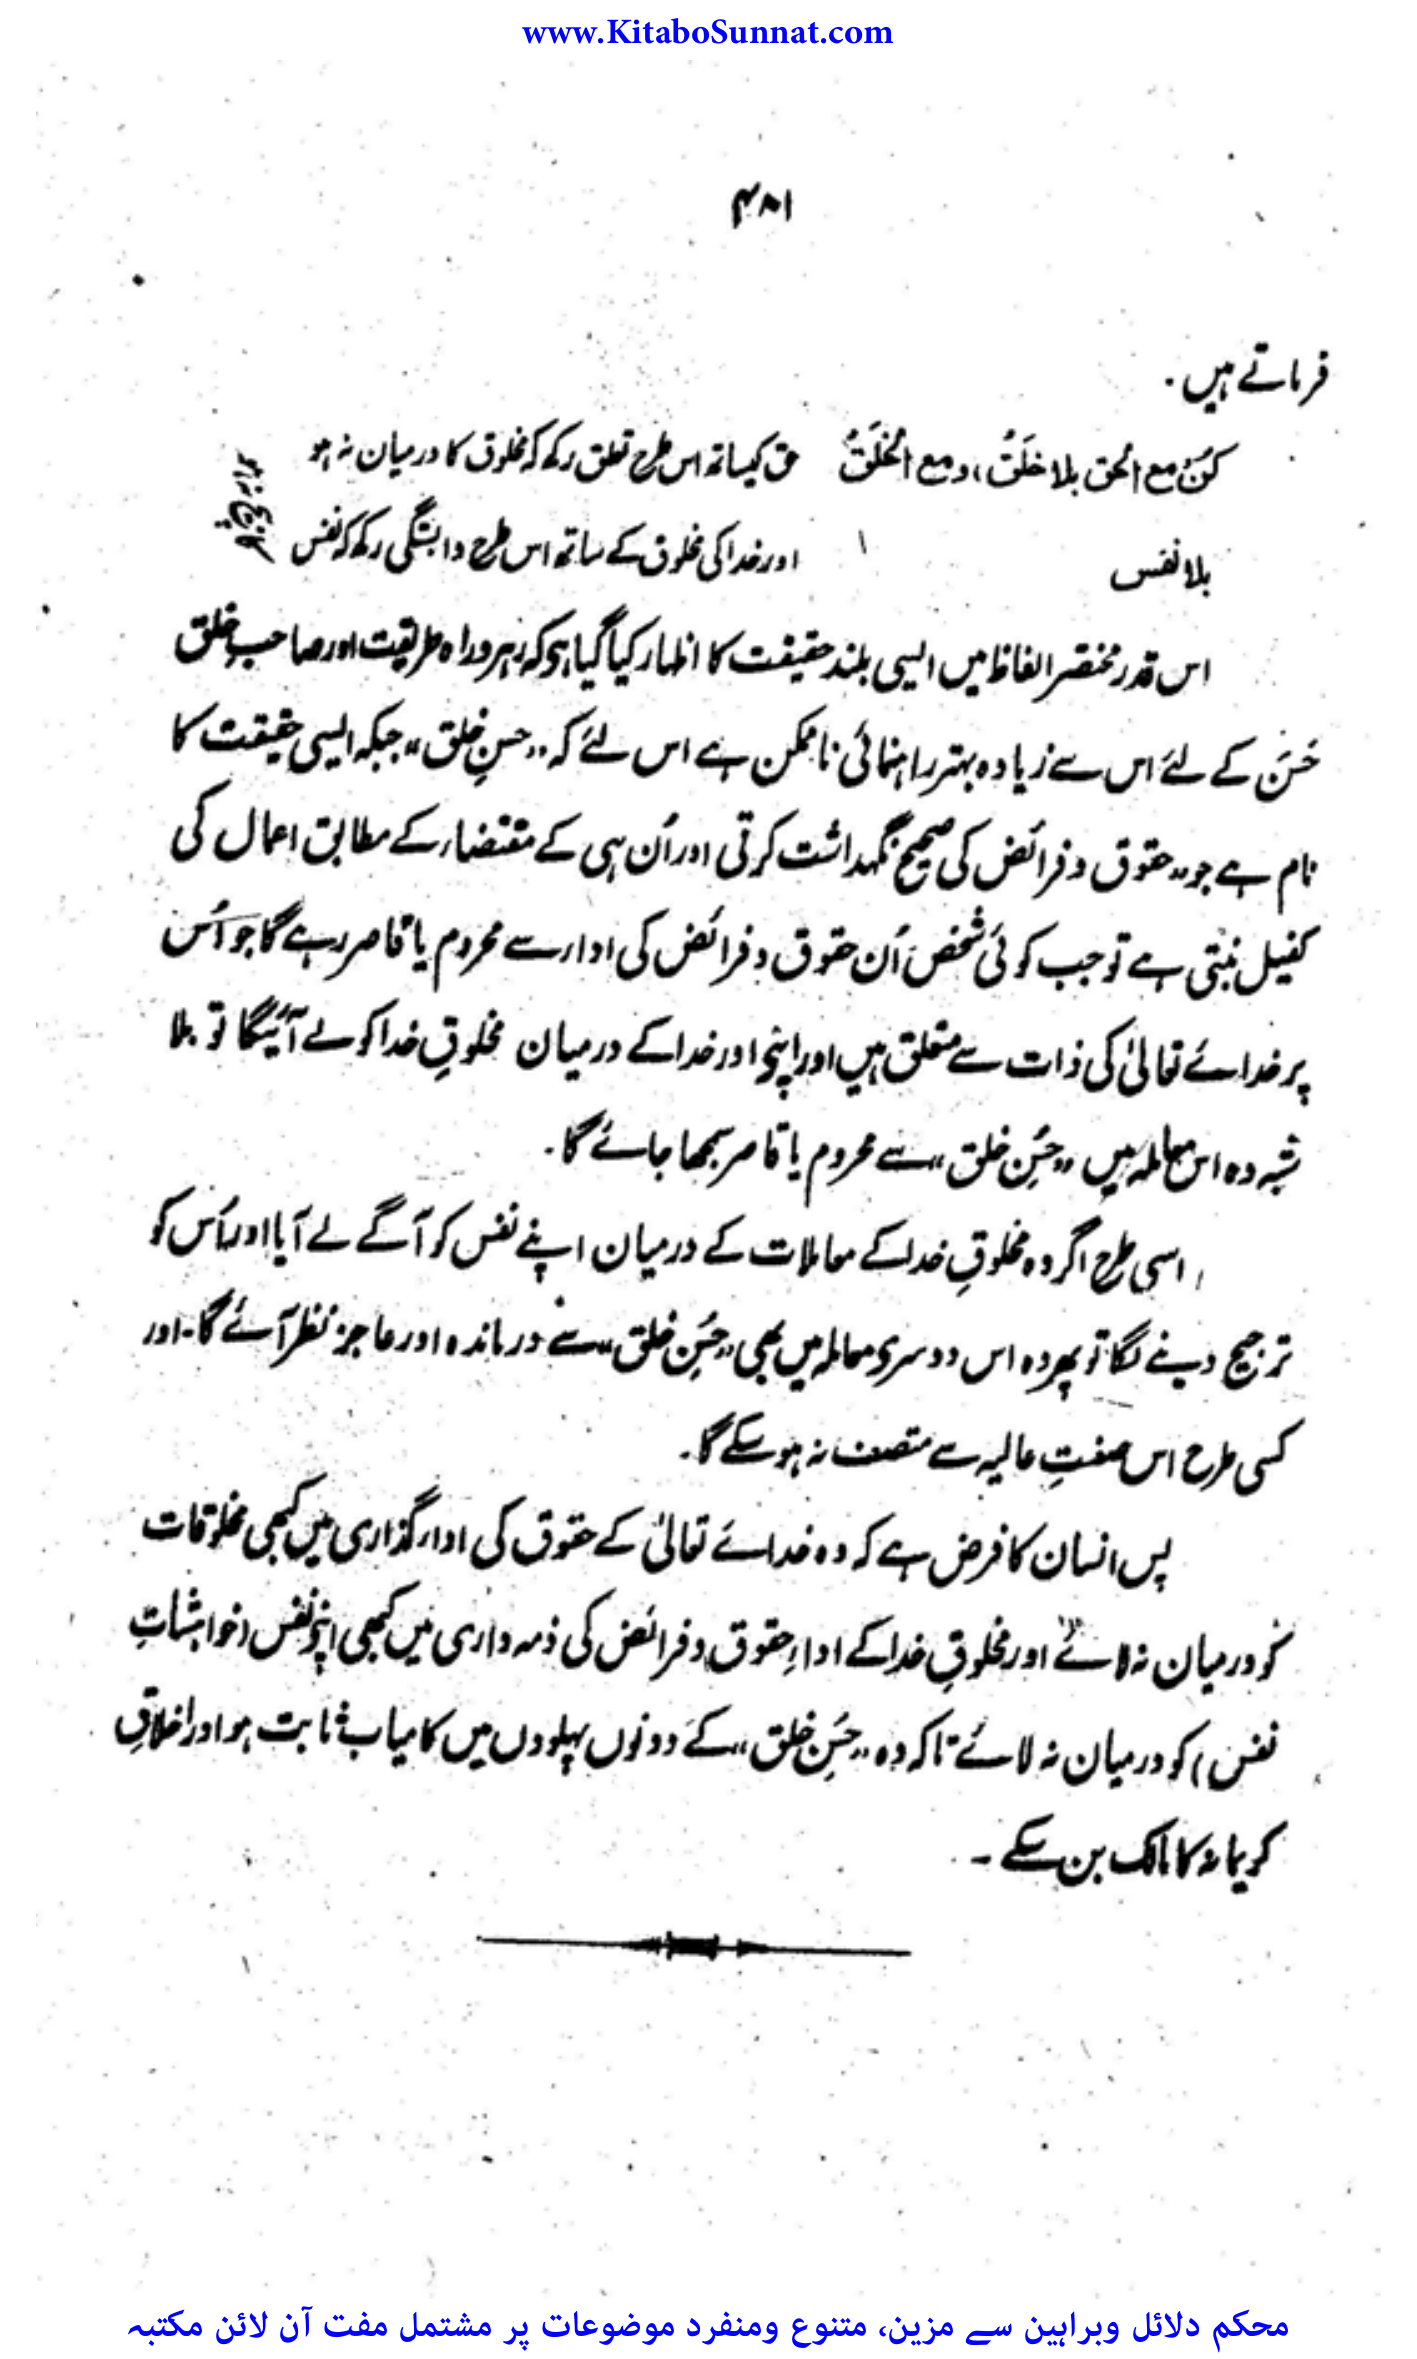 www.KitaboSunnat.com
۴۸۱
فرماتے ہیں۔
کُنْ مع الحق بلا خَلَقُ، و مع الخَلَقُ حق کیساتھ اس طرح تعلق رکھ کہ مخلوق کا درمیان نہ ہو
بلا نفس اور خدا کی مخلوق کے ساتھ اس طرح وابستگی رکھ کہ نفس
اس قدر مختصر الفاظ میں ایسی بلند حقیقت کا اظہار کیا گیا ہو کہ رہرو راہ طریقت اور صاحب خلق
حَسَن کے لئے اس سے زیادہ بہتر راہنمائی ناممکن ہے اس لئے کہ "حسنِ خلق" جبکہ ایسی حقیقت کا
نام ہے جو "حقوق و فرائض کی صحیح نگہداشت کرتی اور اُن ہی کے مقتضاء کے مطابق اعمال کی
کفیل بنتی ہے تو جب کوئی شخص اُن حقوق و فرائض کی ادار سے محروم یا قاصر رہے گا جو اُس
پر خدائے تعالیٰ کی ذات سے متعلق ہیں اور اپنے اور خدا کے درمیان مخلوقِ خدا کو لے آئیگا تو بلا
شبہ وہ اس معاملہ میں "حُسنِ خلق" سے محروم یا قاصر سمجھا جائے گا۔
اسی طرح اگر وہ مخلوقِ خدا کے معاملات کے درمیان اپنے نفس کو آگے لے آیا اور اُس کو
ترجیح دینے لگا تو پھر وہ اس دوسری معاملہ میں بھی "حُسنِ خلق" سے درماندہ اور عاجز نظر آئے گا۔ اور
کسی طرح اس صفتِ عالیہ سے متصف نہ ہو سکے گا۔
پس انسان کا فرض ہے کہ وہ خدائے تعالیٰ کے حقوق کی ادارگذاری میں کبھی مخلوقات
کو درمیان نہ لائے اور مخلوقِ خدا کے اداءِ حقوق و فرائض کی ذمہ داری میں کبھی اپنے نفس (خواہشاتِ
نفس) کو درمیان نہ لائے تاکہ وہ "حُسنِ خلق" کے دونوں پہلووں میں کامیاب ثابت ہو اور اخلاقِ
کریمانہ کا مالک بن سکے۔
محکم دلائل وبراہین سے مزین، متنوع ومنفرد موضوعات پر مشتمل مفت آن لائن مکتبہ